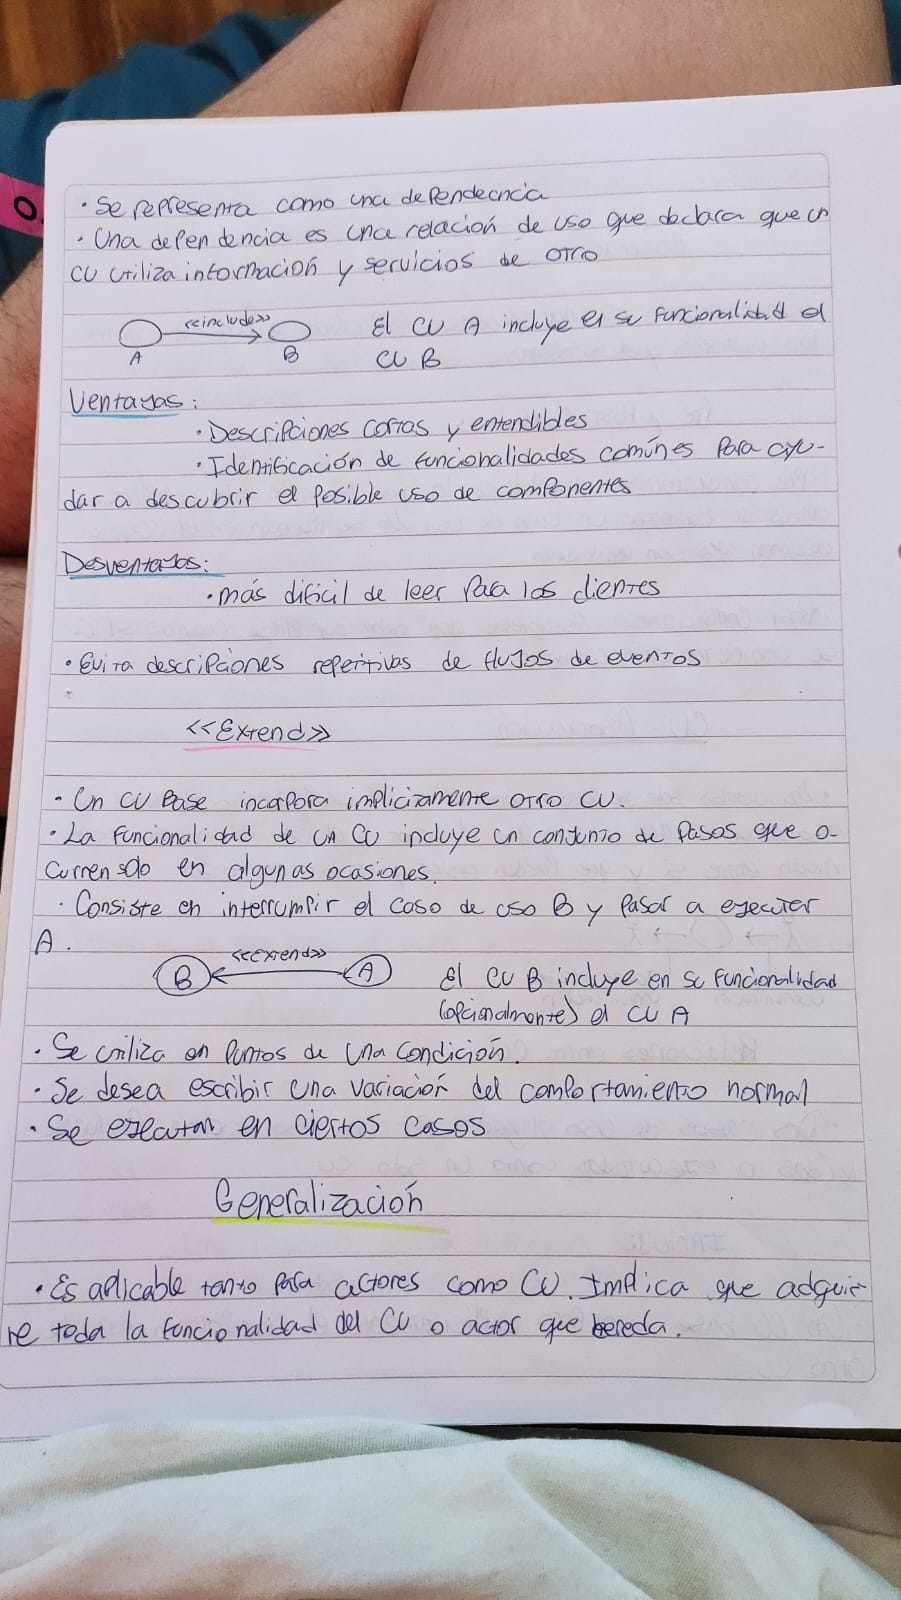 · Se representa como una dependencia
· Una dependencia es una relación de uso que declara que un
CU utiliza información y servicios de otro
<<include>>
A
B
El CU A incluye en su funcionalidad el
CU B
Ventajas:
· Descripciones cortas y entendibles
· Identificación de funcionalidades comúnes para ayu-
dar a descubrir el posible uso de componentes
Desventajas:
· más dificil de leer para los clientes
· Evita descripciones repetitivas de flujos de eventos
<<Extend>>
· Un CU Base incorpora implicitamente otro CU.
· La funcionalidad de un CU incluye un conjunto de pasos que o-
curren solo en algunas ocasiones.
· Consiste en interrumpir el caso de uso B y pasar a ejecutar
A.
<<extend>>
B
A
El CU B incluye en su funcionalidad
(opcionalmente) el CU A
· Se utiliza en puntos de una condición.
· Se desea escribir una variación del comportamiento normal
· Se ejecutan en ciertos casos
Generalización
· Es aplicable tanto para actores como CU. Implica que adquie-
re toda la funcionalidad del CU o actor que hereda.